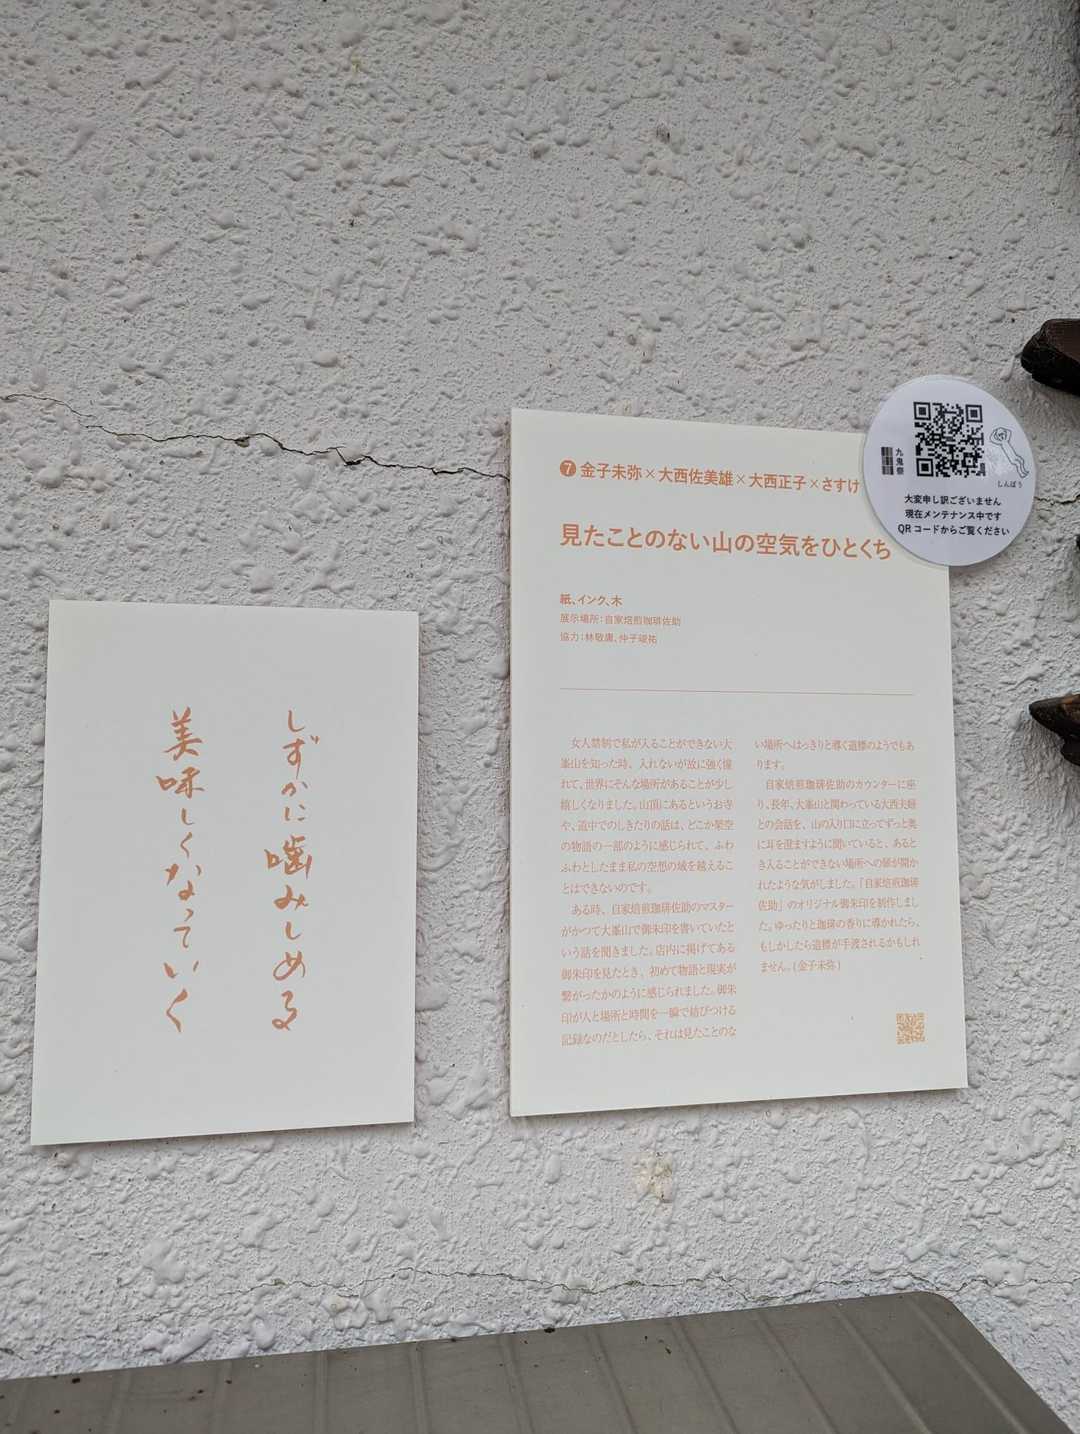 しずかに噛みしめる
美味しくなっていく
❼ 金子未弥×大西佐美雄×大西正子×さすけ
見たことのない山の空気をひとくち
紙、インク、木
展示場所：自家焙煎珈琲佐助
協力：林敬庸、仲子竣祐
女人禁制で私が入ることができない大
峯山を知った時、入れないが故に強く憧
れて、世界にそんな場所があることが少し
嬉しくなりました。山頂にあるというお寺
や、道中でのしきたりの話は、どこか架空
の物語の一部のように感じられて、ふわ
ふわとしたまま私の空想の域を越えるこ
とはできないのです。
ある時、自家焙煎珈琲佐助のマスター
がかつて大峯山で御朱印を書いていたと
いう話を聞きました。店内に掲げてある
御朱印を見たとき、初めて物語と現実が
繋がったかのように感じられました。御朱
印が人と場所と時間を一瞬で結びつける
記録なのだとしたら、それは見たことのな
い場所へはっきりと導く道標のようでもあ
ります。
自家焙煎珈琲佐助のカウンターに座
り、長年、大峯山と関わっている大西夫婦
との会話を、山の入り口に立ってずっと奥
に耳を澄ますように聞いていると、あると
き入ることができない場所への扉が開か
れたような気がしました。「自家焙煎珈琲
佐助」のオリジナル御朱印を制作しまし
た。ゆったりと珈琲の香りに導かれたら、
もしかしたら道標が手渡されるかもしれ
ません。(金子未弥)
九鬼祭
しんぼう
大変申し訳ございません
現在メンテナンス中です
QRコードからご覧ください